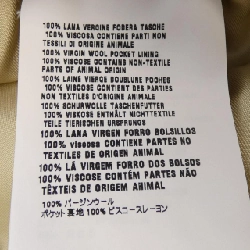 100% LANA VERGINE FODERA TASCHE
100% VISCOSA CONTIENE PARTI NON
TESSILI DI ORIGINE ANIMALE
100% VIRGIN WOOL POCKET LINING
100% VISCOSE CONTAINS NON-TEXTILE
PARTS OF ANIMAL ORIGIN
100% LAINE VIERGE DOUBLURE POCHES
100% VISCOSE CONTIENT DES PARTIES
NON TEXTILES D'ORIGINE ANIMALE
100% SCHURWOLLE TASCHENFUTTER
100% VISKOSE ENTHÄLT NICHTTEXTILE
TEILE TIERISCHEN URSPRUNGS
100% LANA VIRGEN FORRO BOLSILLOS
100% viscosa CONTIENE PARTES NO
TEXTILES DE ORIGEN ANIMAL
100% LÃ VIRGEM FORRO DOS BOLSOS
100% VISCOSE CONTÉM PARTES NÃO
TÊXTEIS DE ORIGEM ANIMAL
100% バージンウール
ポケット裏地 100% ビスコースレーヨン